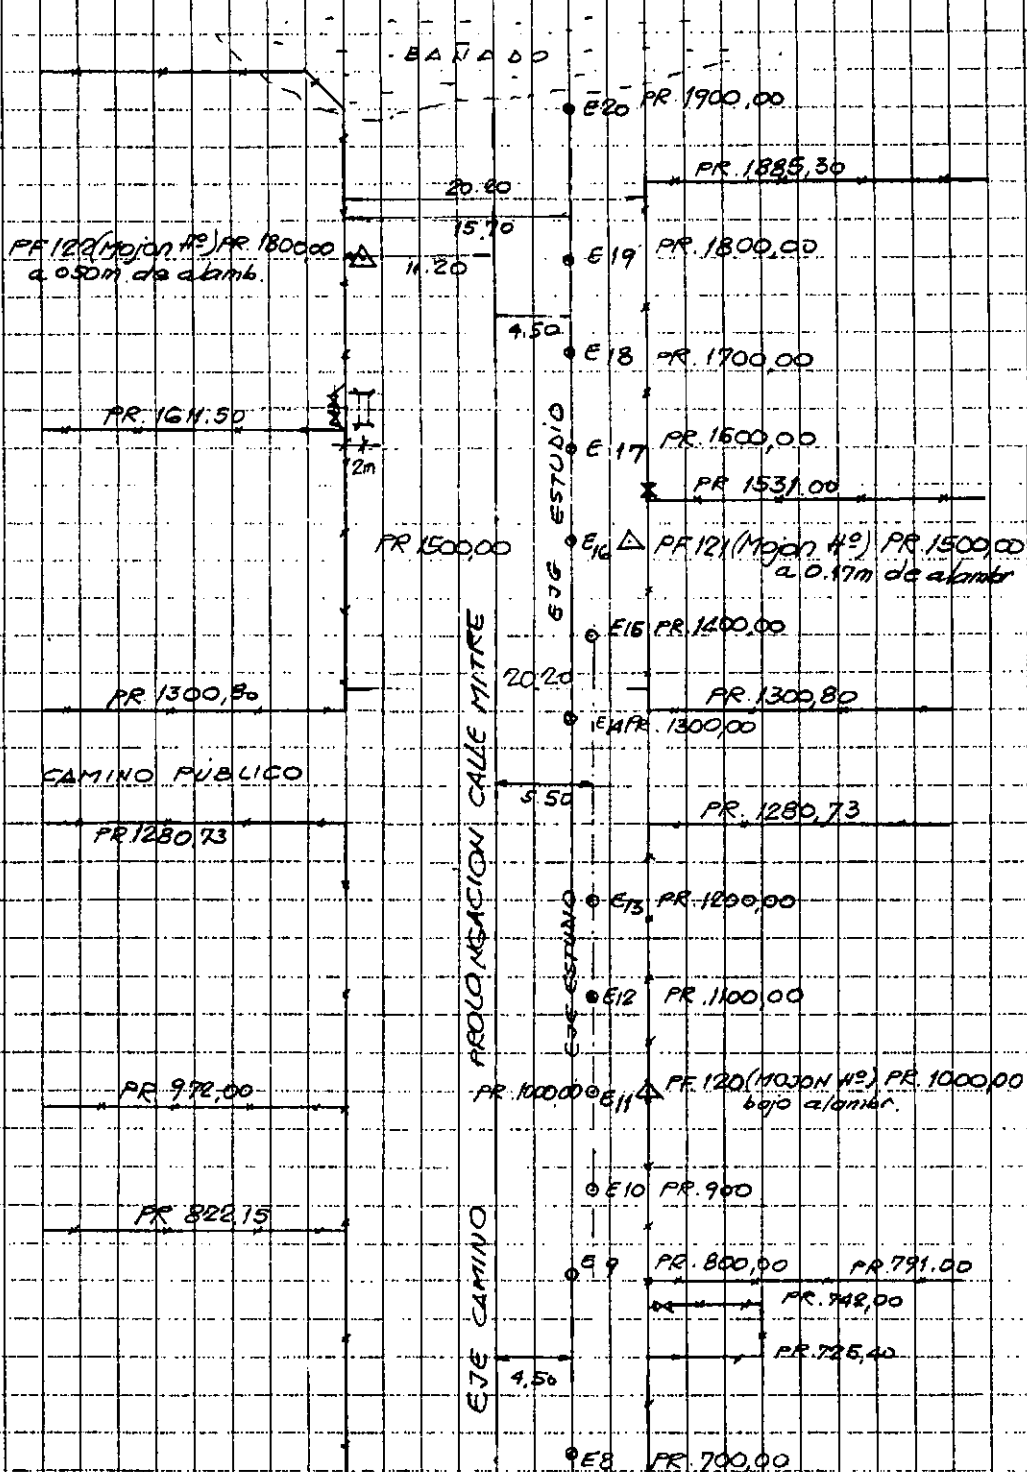 BAÑADO
E20 PR. 1900,00
PR. 1885,30
20.20
15.70
PF 122 (Mojon Hº) PR. 1800.00
a 0.50m de alamb.
11.20
E19 PR. 1800,00
4.50
E18 PR. 1700,00
PR. 1611.50
2m
E17 PR. 1600,00
PR 1531.00
EJE ESTUDIO
PR 1500,00
E16 PF 121 (Mojon Hº) PR. 1500,00
a 0.17m de alambr
E15 PR. 1400.00
20.20
PR. 1300,80
PR. 1300,80
E14 PR. 1300,00
CAMINO PÚBLICO
5.50
PR. 1280,73
PR. 1280,73
PROLONGACION CALLE MITRE
E13 PR. 1200,00
EJE ESTUDIO
E12 PR. 1100,00
PR. 972,00
PR. 1000,00 E11 PF. 120 (MOJON Hº) PR. 1000,00
bajo alambr.
E10 PR. 900
PR. 822.15
E9 PR. 800,00 PR. 791.00
PR. 742,00
EJE CAMINO
PR. 725,40
4,50
E8 PR. 700,00